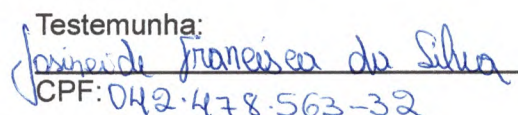 Testemunha:
Josineide Francisca da Silva
CPF: 042.478.563-32